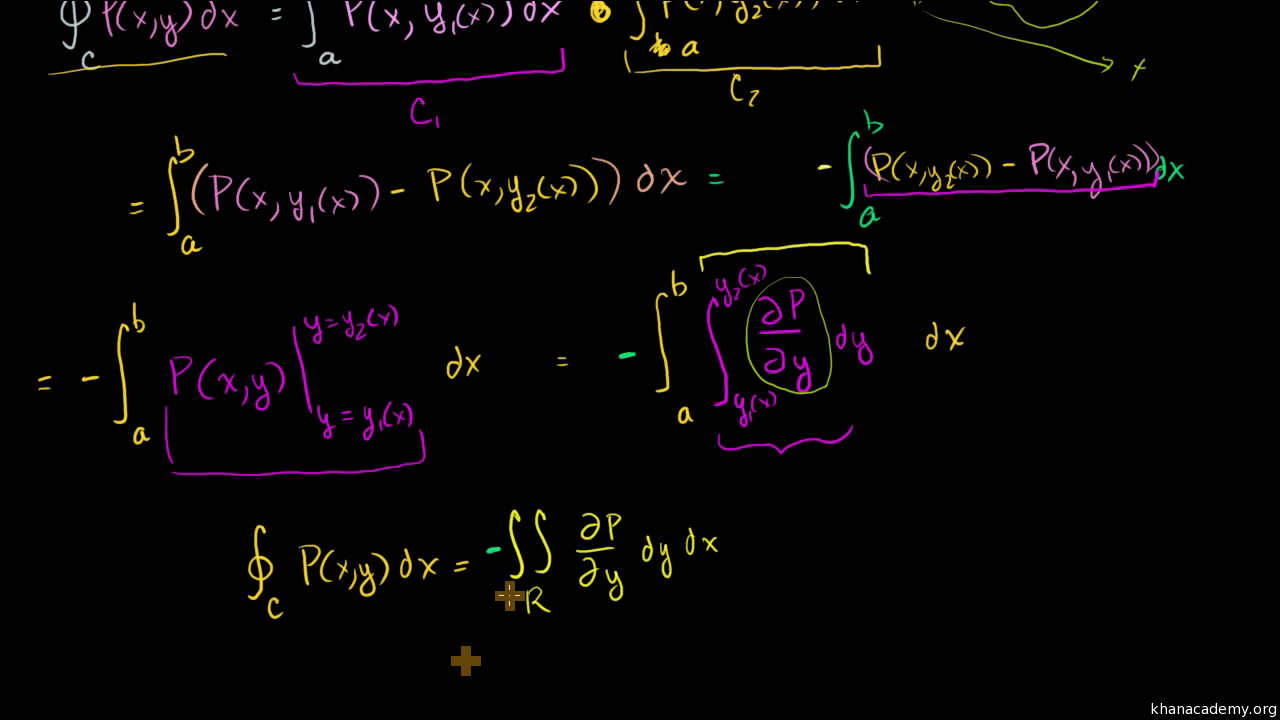 ∮_C P(x,y) dx = ∫_a P(x, y₁(x)) dx ∫_a y₂(x)
C₁ C₂ x
= ∫_a^b (P(x, y₁(x)) - P(x, y₂(x))) dx = - ∫_a^b (P(x, y₂(x)) - P(x, y₁(x))) dx
= - ∫_a^b P(x,y) |_{y = y₁(x)}^{y = y₂(x)} dx = - ∫_a^b ∫_{y₁(x)}^{y₂(x)} ∂P/∂y dy dx
∮_C P(x,y) dx = - ∬_R ∂P/∂y dy dx
khanacademy.org